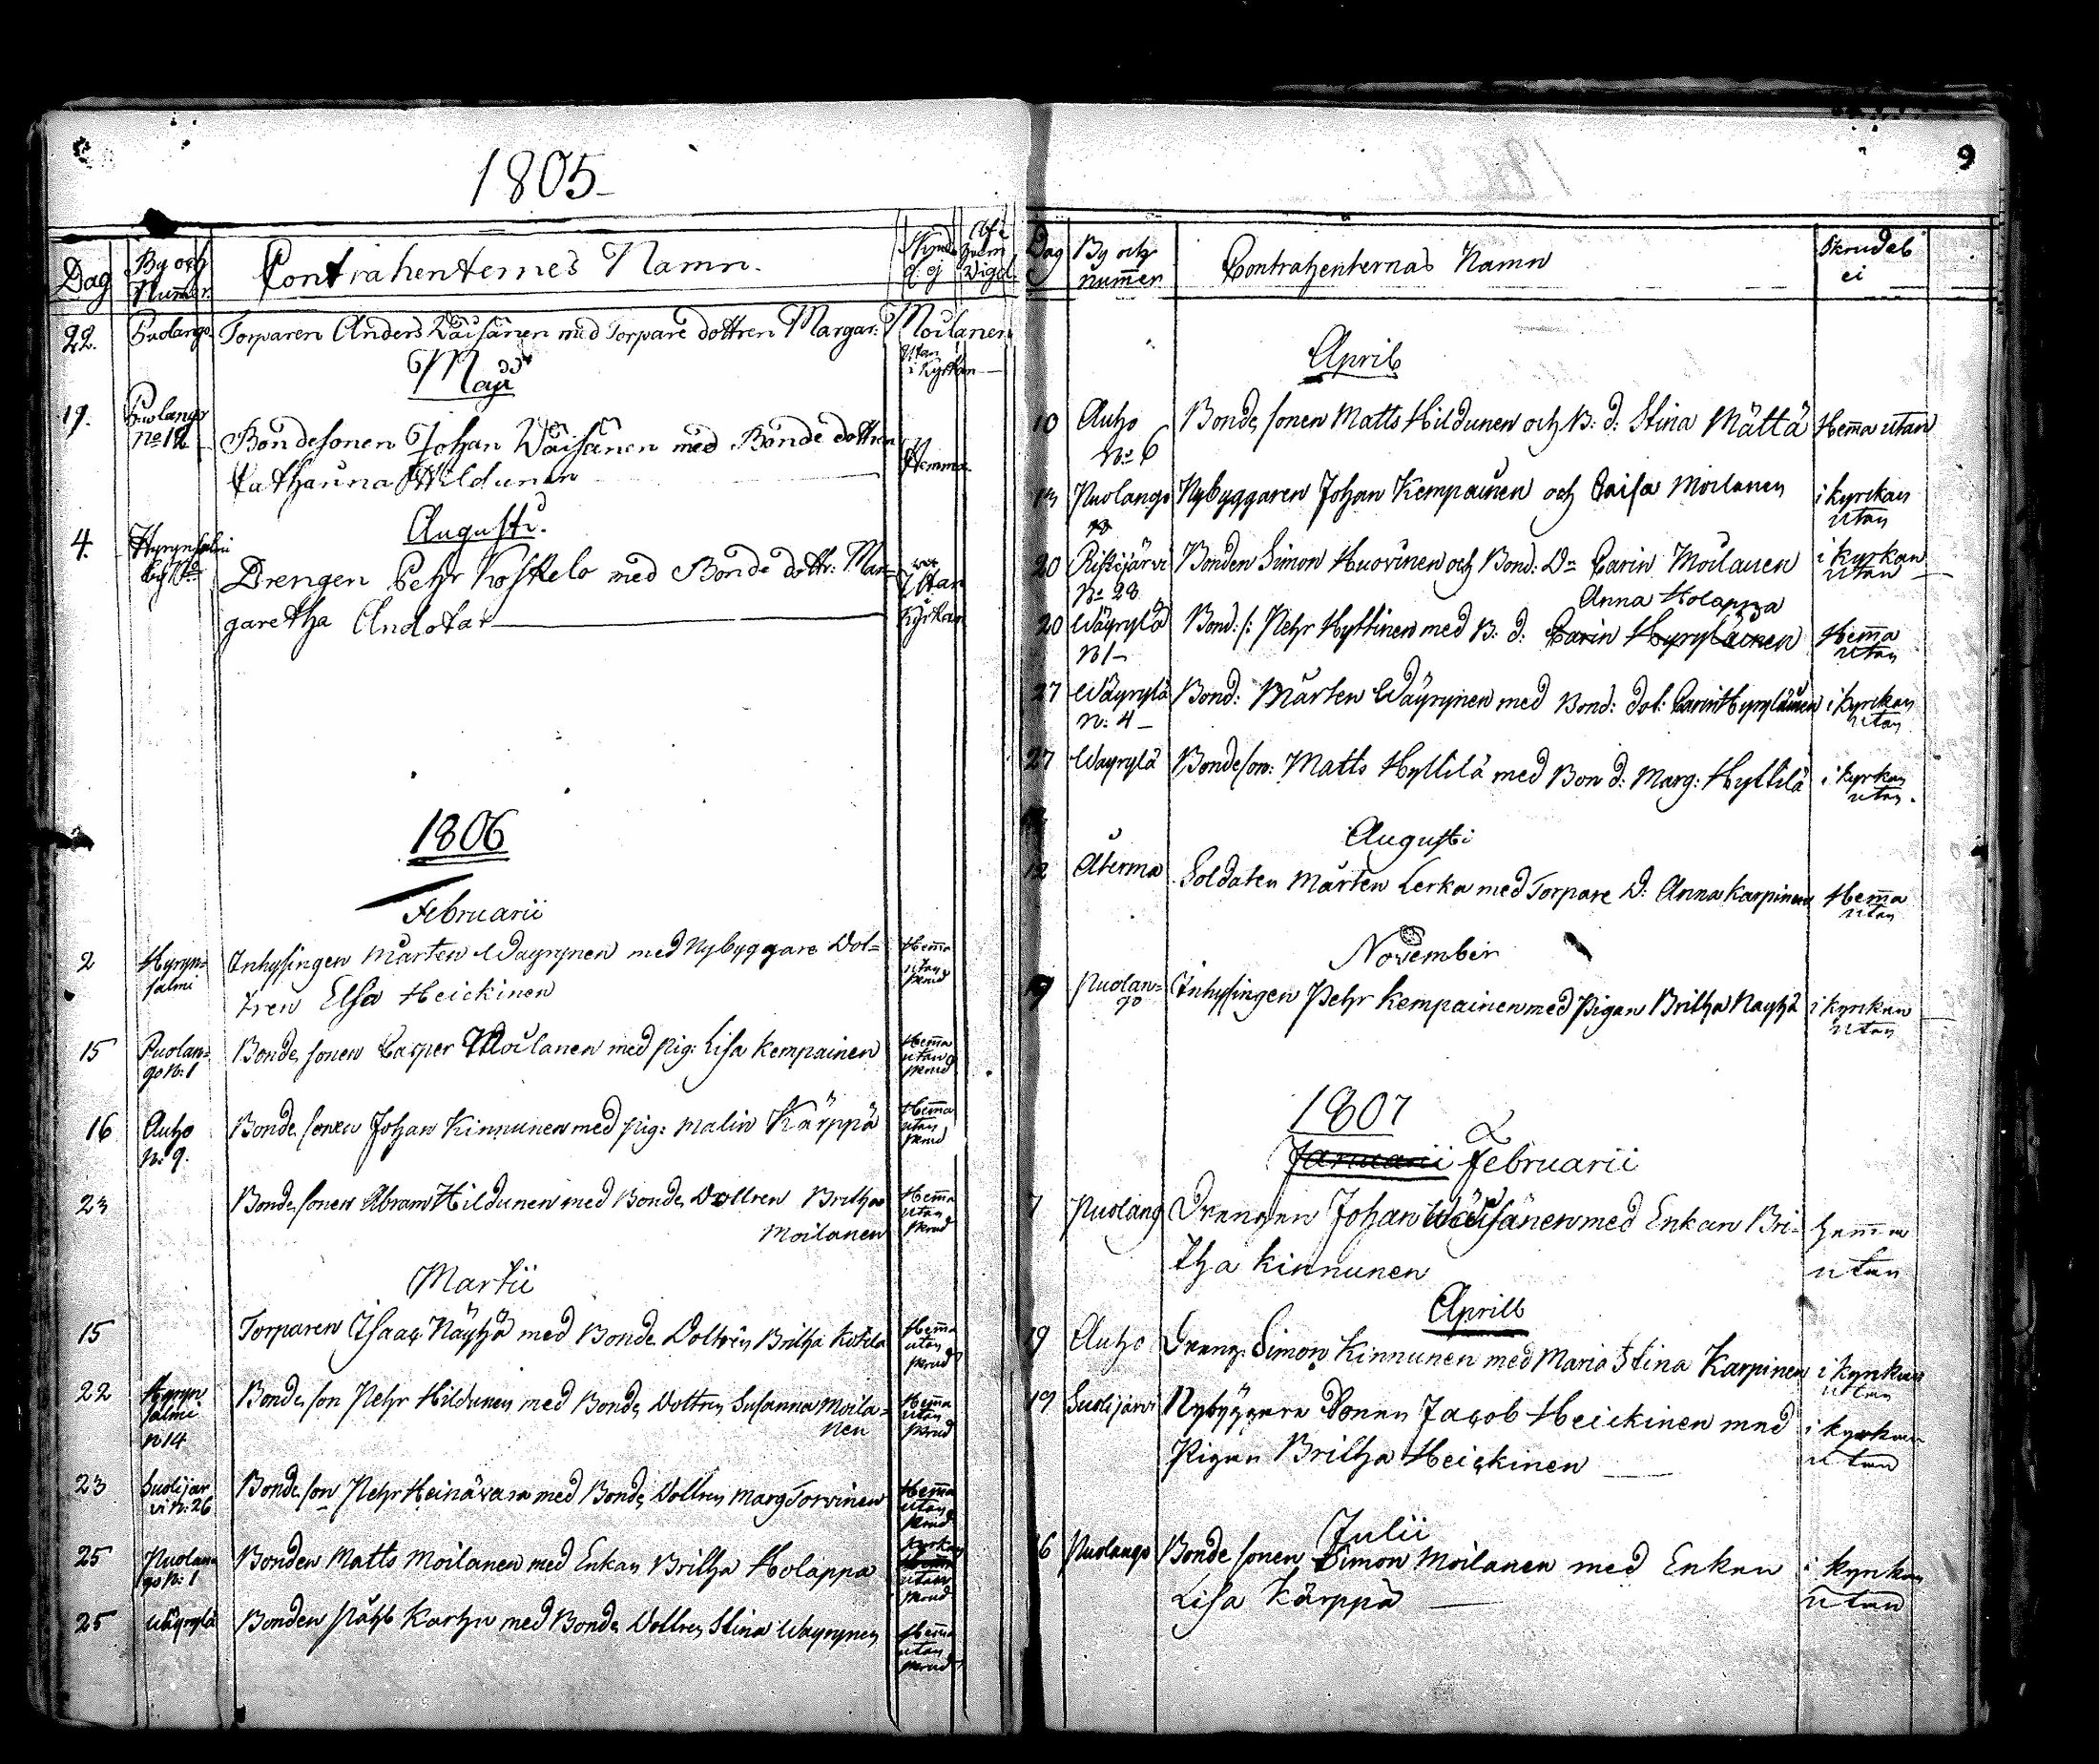 1805
Dag
By och
Num̄er
Contrahenternes Namn.
Af
hvem
Vigd
22.
Puolango
Torparen Anders Väisänen med Torpare dottren Margar: Moilanen
utan
i Kyrkan
Maji
19.
Puolango
No 12
Bondesonen Johan Väisänen med Bonde dottren
Catharina Hildunen
Hemma
Augusti.
4.
Hyrynsalmi
Drengen Pehr Koskelo med Bonde dottr: Mar-
garetha Andotar
utan
Kyrkan
1806
Februarii
2
Hyryn=
salmi
Inhysingen Mårten Wäyrynen med Nybyggare Dot=
tren Elsa Heickinen
Hem̄a
utan
skrud
15
Puolan=
go N: 1
Bonde sonen Casper Moilanen med pig: Lisa Kempainen
Hem̄a
utan
skrud
16
Auho
N: 9.
Bonde sonen Johan Kinnunen med pig: Malin Kärppä
Hem̄a
utan
skrud
23
Bonde sonen Abram Hildunen med Bonde Dottren Britha
Moilanen
Hem̄a
utan
skrud
Martii
15
Torparen Isaac Näyhä med Bonde Dottren Britha Kotila
Hem̄a
utan
skrud
22
Hyryn
salmi
N 14
Bonde son Pehr Hildunen med Bonde Dottren Susanna Moila=
nen
Hem̄a
utan
skrud
23
Suolijär
vi N: 26
Bonde son Pehr Heinävara med Bonde Dottren Marg Torvinen
Hem̄a
utan
skrud
25
Puolan=
go N: 1
Bonden Matts Moilanen med Enkan Britha Holappa
Kyrkan
utan
skrud
25
Wäyrylä
Bonden Påhl Karhu med Bonde Dottren Stina Wäyrynen
Hem̄a
utan
skrud
9
Dag
By och
num̄er
Contrahenternas Namn
Skrud el
ei
April
10
Auho
No 6
Bonde sonen Matts Hildunen och B: d: Stina Mättä
Hem̄a utan
13
Puolango
Nybyggaren Johan Kempainen och Caisa Moilanen
i kyrckan
utan
20
Ristijärvi
No 28
Bonden Simon Huovinen och Bond: D: Carin Moilanen
i kyrkan
utan
Anna Holappa
20
Wäyrylä
N 1
Bond: s: Pehr Hyttinen med B: d: Carin Hyryläinen
Hem̄a
utan
27
Wäyrylä
N: 4
Bond: Mårten Wäyrynen med Bond: dot: Carin Hyryläinen
i kyrckan
utan
27
Wäyrylä
Bondeson: Matts Hyttilä med Bon d: Marg: Hyttilä
i kyrkan
utan.
Augusti
12
Alerma
Soldaten Mårten Lerka med Torpare D: Anna Karpinen
Hem̄a
utan
November
Puolan=
go
Inhysingen Pehr Kempainen med Pigan Britha Näyhä
i kyrckan
utan
1807
Januarii Februarii
7
Puolang
Drengen Johan Wäisänen med Enkan Bri-
tha Kinnunen
hem̄a
utan
Aprill
19
Auho
Dreng: Simon Kinnunen med Maria Stina Karpinen
i kyrkan
utan
19
Suolijärvi
Nybyggare Sonen Jacob Heickinen med
Pigan Britha Heickinen
i kyrkan
utan
Julii
6
Puolango
Bonde sonen Simon Moilanen med Enkan
Lisa Kärppä
i kyrkan
utan